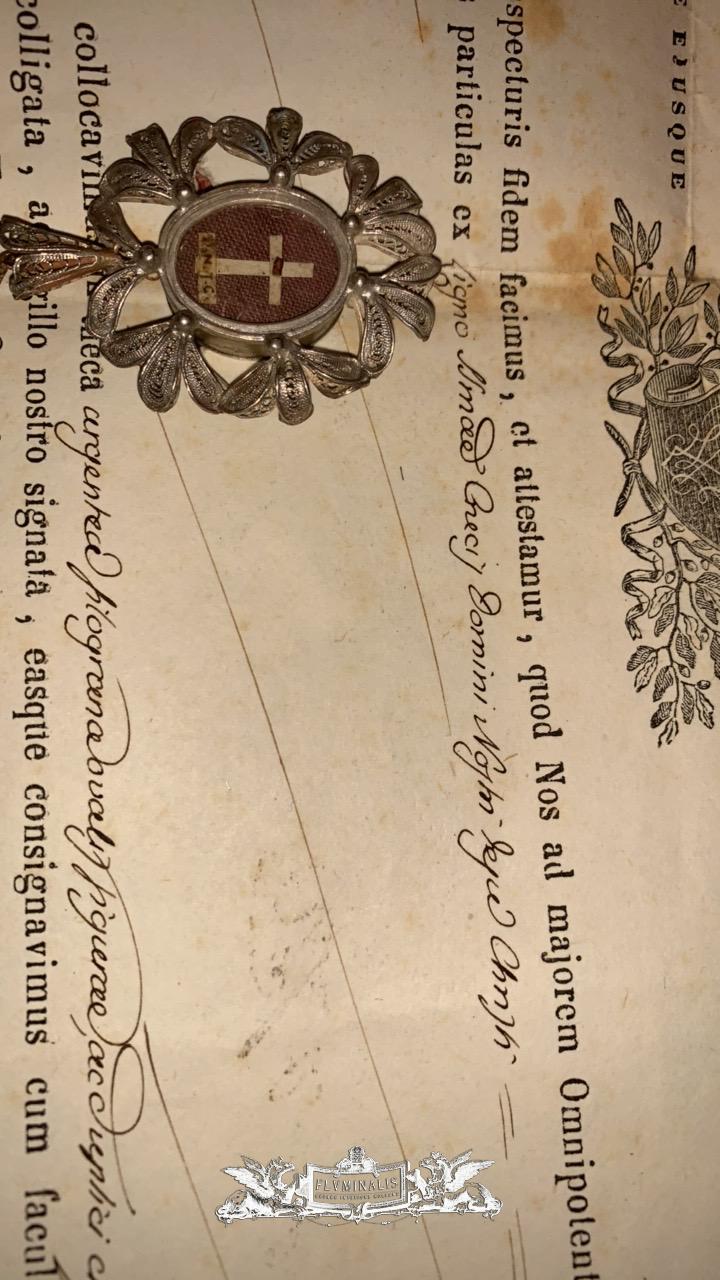 EJUSQUE
specturis fidem facimus , et attestamur , quod Nos ad majorem Omnipotent
particulas ex Ligno Smae Crucis Domini Nostri Jesu Christi
collocavim theca argentea filograna ovalis figurae, ac duplici
colligata , a rillo nostro signatâ , easque consignavimus cum facul
FLVMINALIS